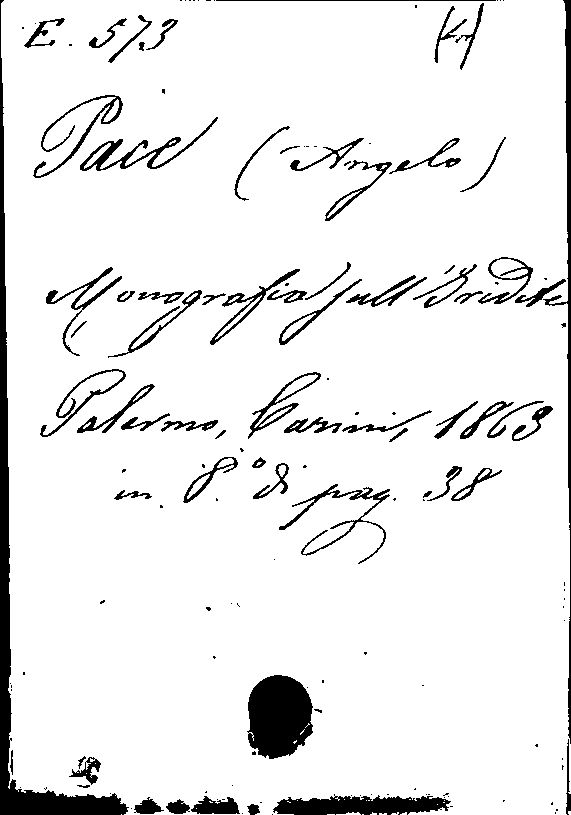 E. 573
Pace (Angelo)
Monografia sull'Iridite
Palermo, Carini, 1863
in 8.° di pag. 38